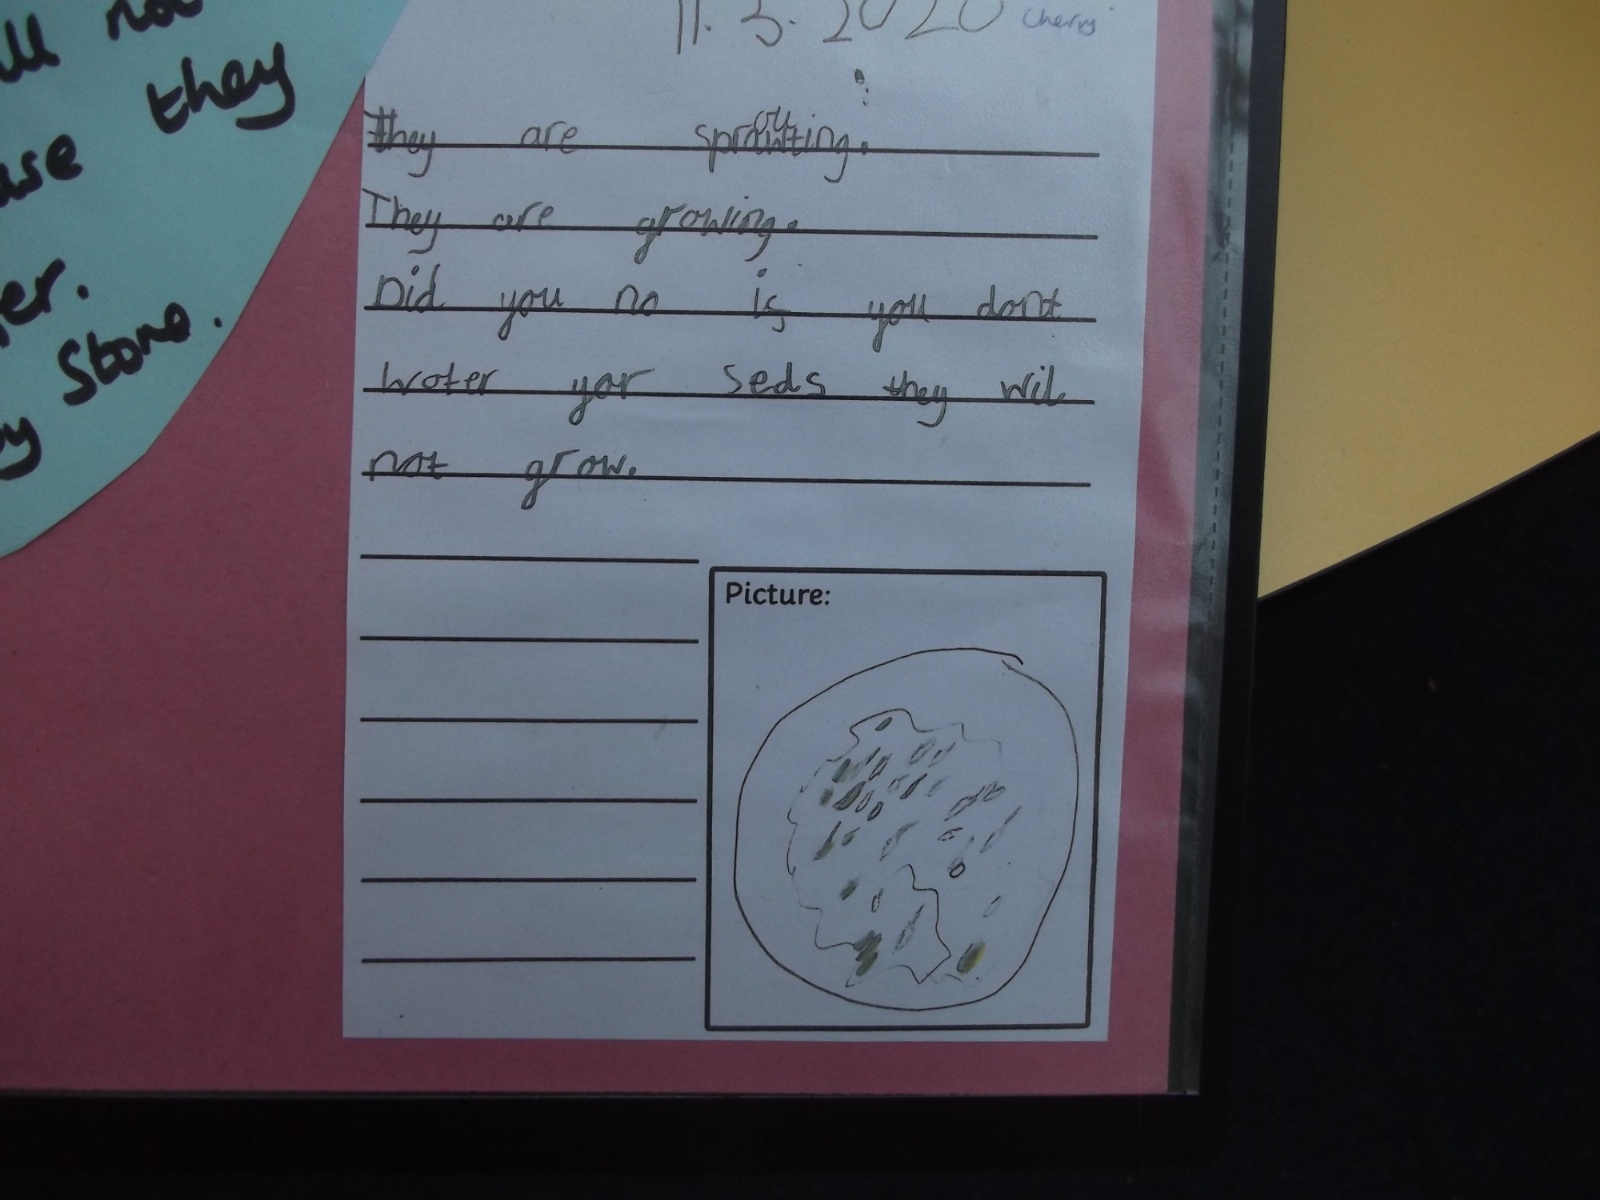 they
er.
Stone.
11.3.2020 Cherry
They are sprouting.
They are growing.
Did you no is you dont
woter yor seds they wil
not grow.
Picture: